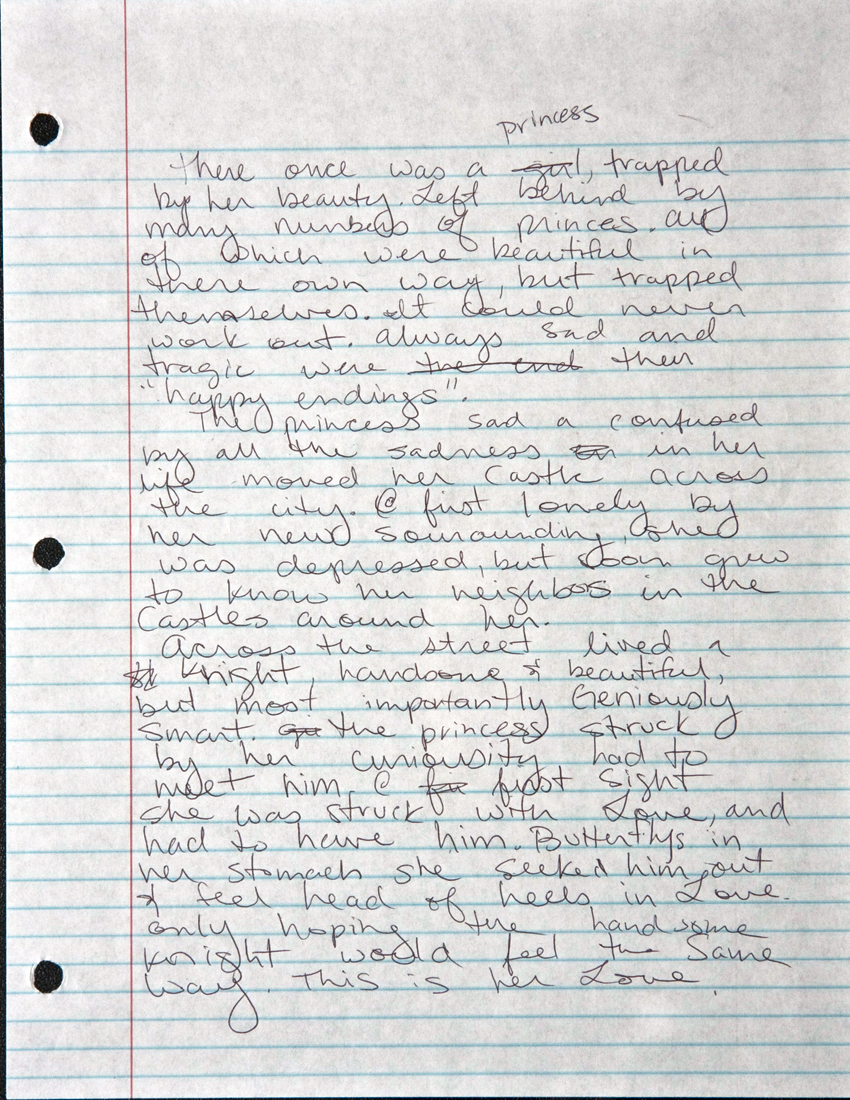 princess
there once was a girl, trapped
by her beauty. Left behind by
many numbers of princes. all
of which were beautiful in
there own way, but trapped
themselves. It could never
work out. always sad and
tragic were the end their
"happy endings".
The princess sad a confused
by all the sadness in her
life moved her Castle across
the city. @ first lonely by
her new sourounding, she
was depressed, but soon grew
to know her neighbors in the
Castles around her.
Across the street lived a
knight, handsome & beautiful,
but most importantly Geniously
smart. the princess struck
by her curiousity had to
meet him. @ first sight
she was struck with Love, and
had to have him. Butterflys in
her stomach she seeked him out
& feel head of heels in Love.
only hoping the handsome
knight would feel the Same
way. This is her Love.